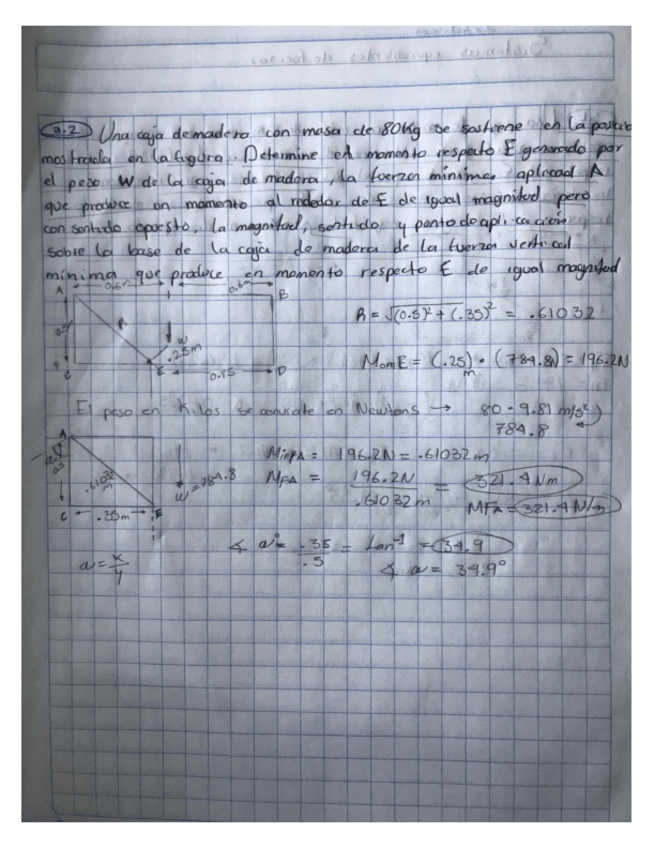 3.2 Una caja de madera con masa de 80Kg se sostiene en la posició
mostrada en la figura. Determine el momento respecto E generado por
el peso W de la caja de madera, la fuerza mínima, aplicad A
que produce un momento al rededor de E de igual magnitud pero
con sentido opuesto, la magnitud, sentido y punto de aplicación
sobre la base de la caja de madera de la fuerza vertical
mínima que produce un momento respecto E de igual magnitud
A 0.6m 0.6m B
R = √(0.5)² + (.35)² = .61032
W
.25m
C E 0.85 D
MomE = (.25)m · (784.8N) = 196.2N
El peso en Kilos se convierte en Newtons → 80 · 9.81 m/s²)
784.8
A
.61032 m
W = 784.8
C .35m E
MinpA = 196.2N = .61032 m
MFA = 196.2N / .61032 m = 321.4 Nm
MFA = 321.4 N/m
∡ a° = .35 / .5 = tan⁻¹ = 34.9
a = x/y
∡ a = 34.9°